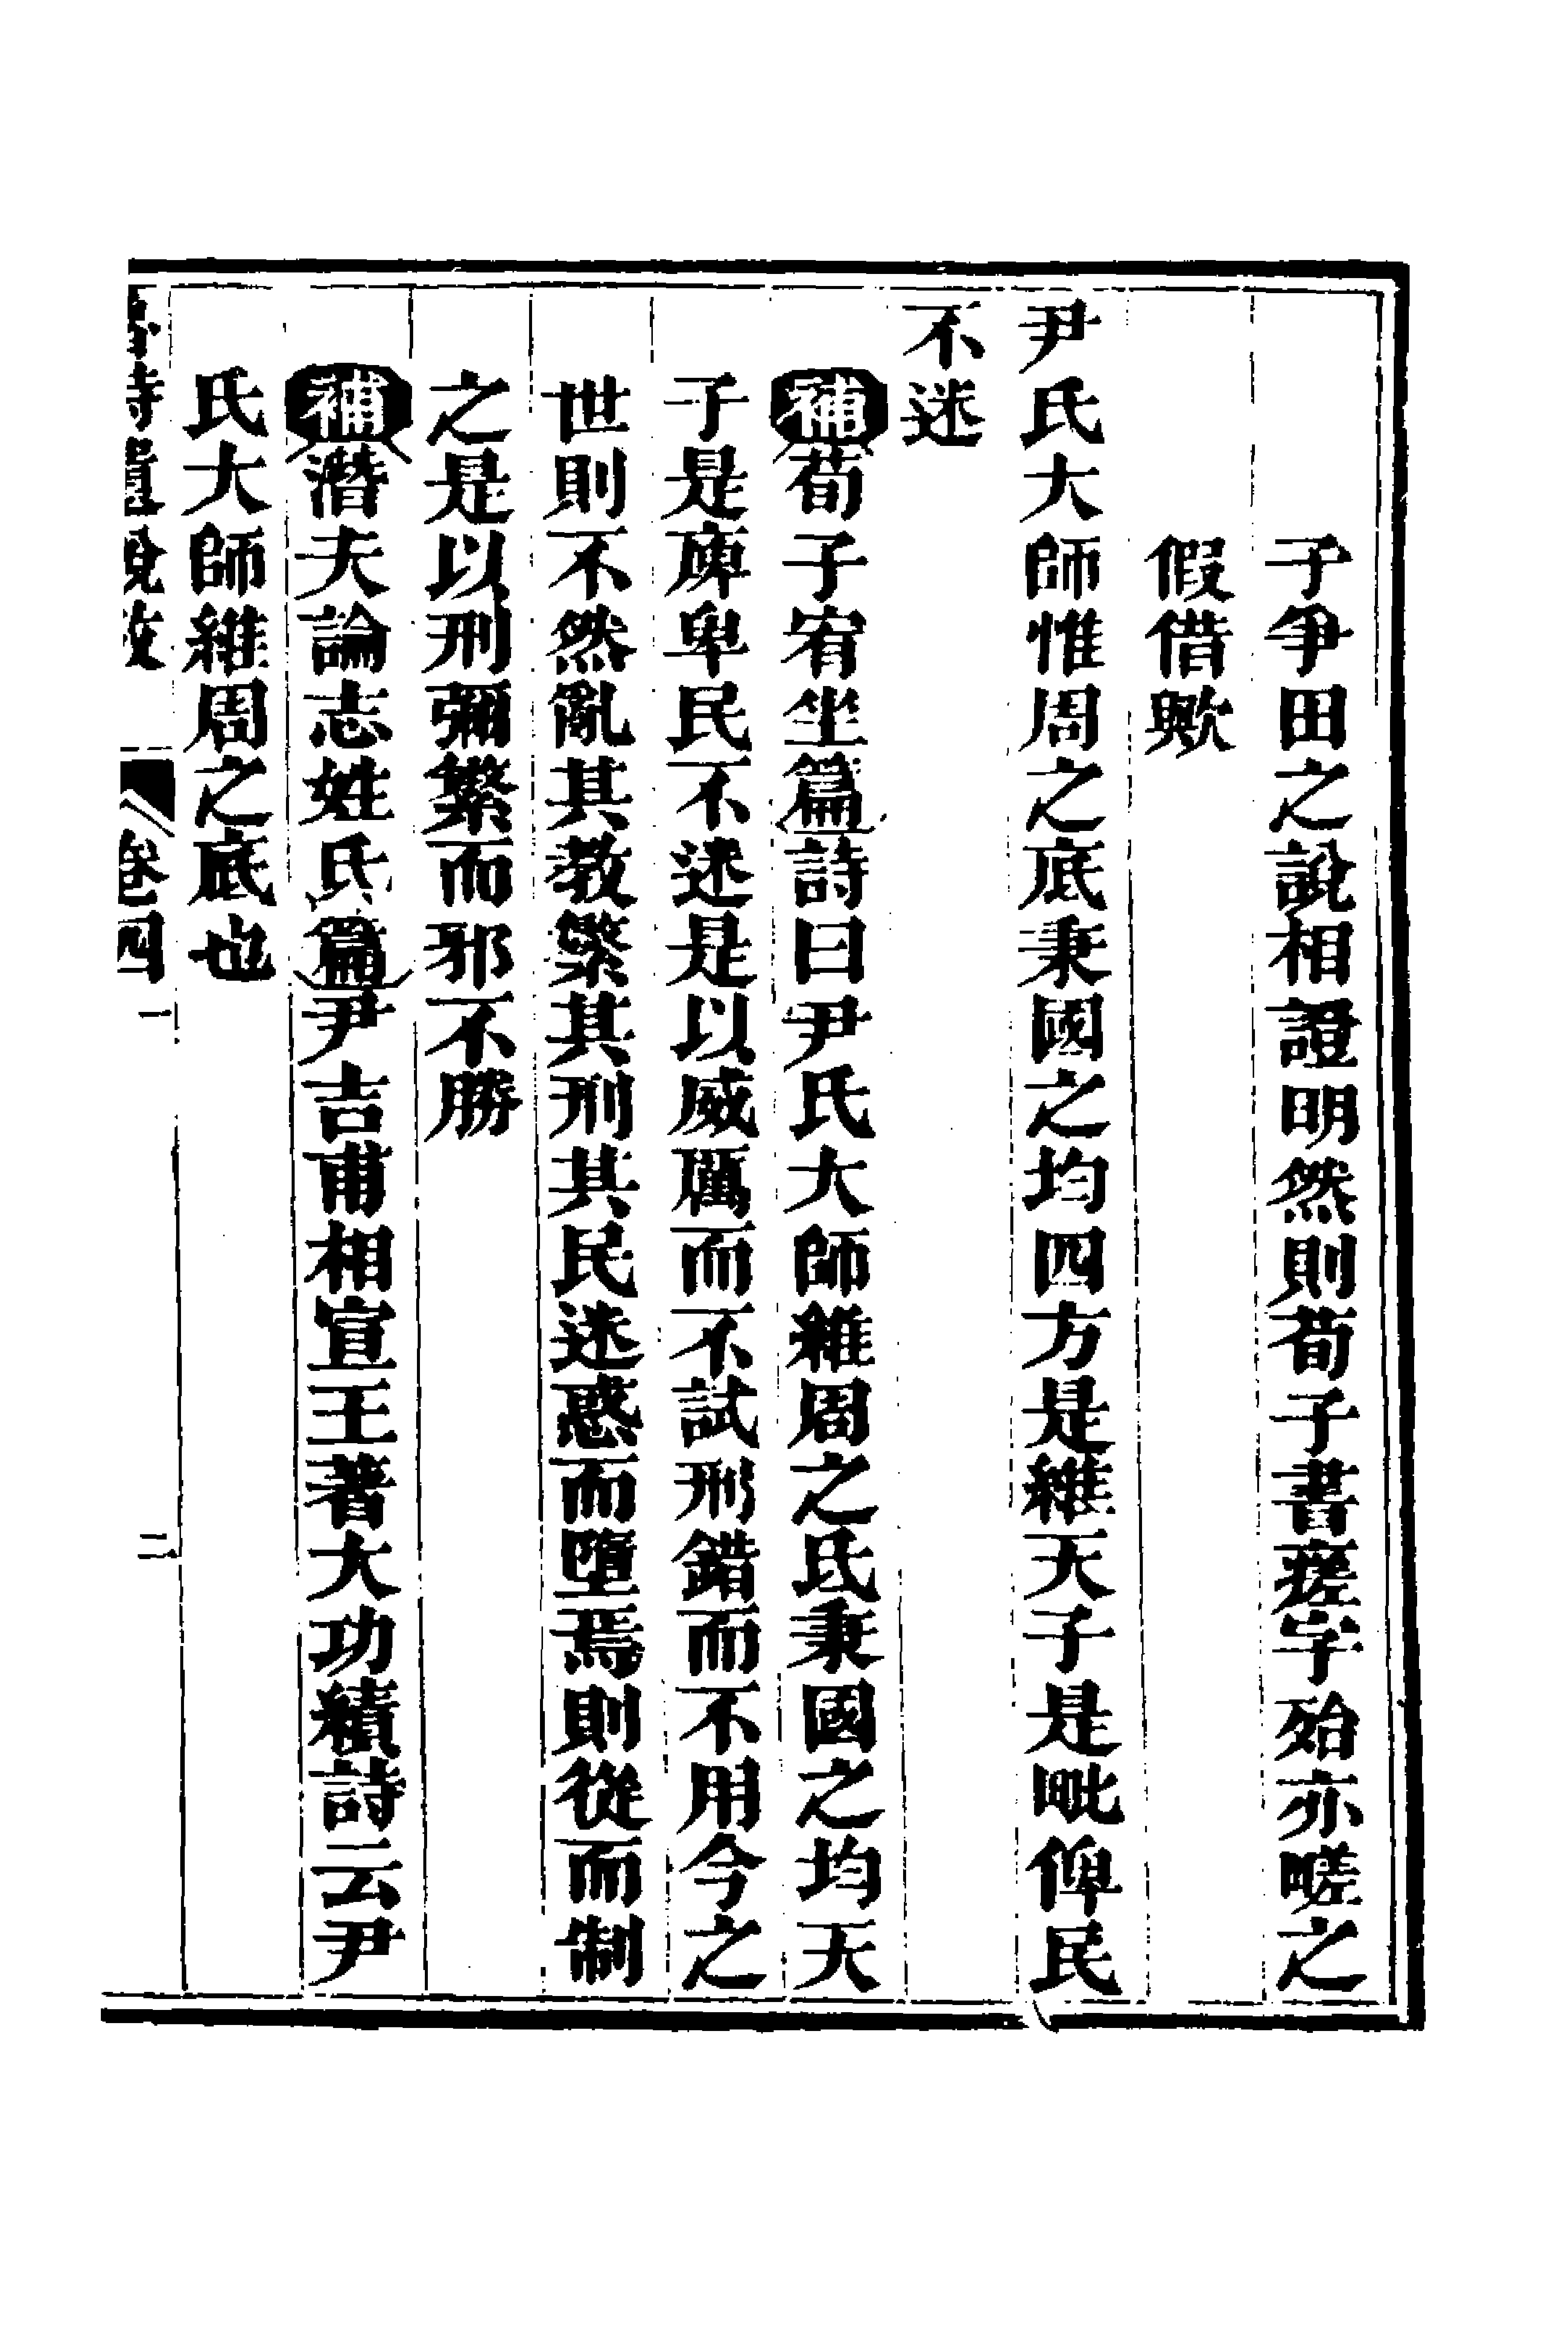 子爭田之說相證明然則荀子書瘥字殆亦䁟之
假借歟
尹氏大師惟周之底秉國之均四方是維天子是毗俾民
不迷
補荀子宥坐篇詩曰尹氏大師維周之氐秉國之均天
子是庳卑民不迷是以威厲而不試刑錯而不用今之
世則不然亂其教繁其刑其民迷惑而墮焉則從而制
之是以刑彌繁而邪不勝
補潛夫論志姓氏篇尹吉甫相宣王著大功績詩云尹
氏大師維周之底也
詩遺說攷 卷四一 二